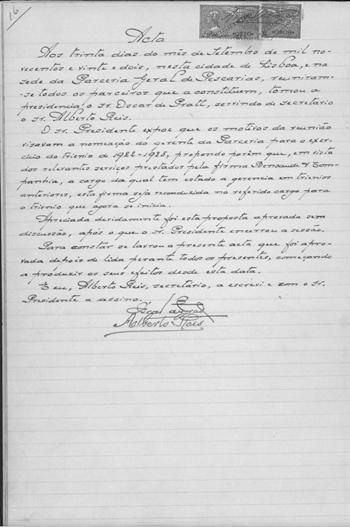 16
Acta
Aos trinta dias do mês de Setembro de mil no-
vecentos e vinte e dois, nesta cidade de Lisboa, e na
séde da Parceria Geral de Pescarias, reuniram-
se todos os parceiros que a constituem, tomou a
presidencia o sr. Oscar de Pratt, servindo de secretario
o sr. Alberto Reis.
O sr. Presidente expoz que os motivos da reunião
visavam a nomeação do gerente da Parceria para o exer-
cicio do trienio de 1922-1925, propondo porêm que, em vista
dos relevantes serviços prestados pela firma Bensaude & Com-
panhia, a cargo da qual tem estado a gerencia em trienios
anteriores, esta firma seja reconduzida no referido cargo para
o trienio que agora se inicia.
Apreciada devidamente foi esta proposta aprovada sem
discussão, após o que o sr. Presidente encerrou a sessão.
Para constar se lavrou a presente acta que foi apro-
vada depois de lida perante todos os presentes, começando
a produzir os seus efeitos desde esta data.
E eu, Alberto Reis, secretário, a escrevi e com o Sr.
Presidente a assino.
Alberto Reis